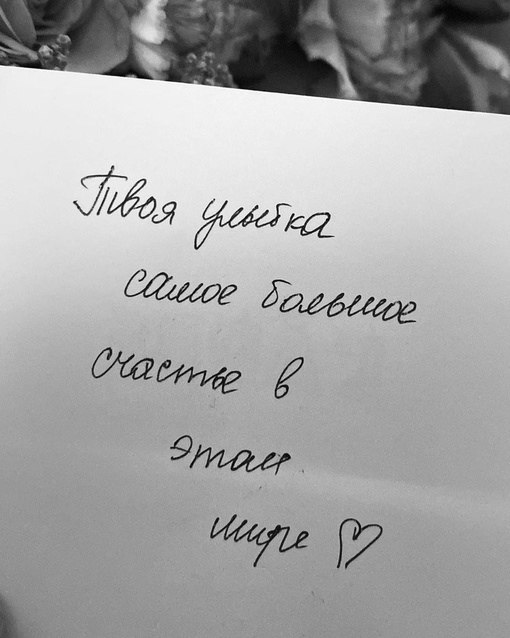 Твоя улыбка
самое большое
счастье в
этом
мире ♡